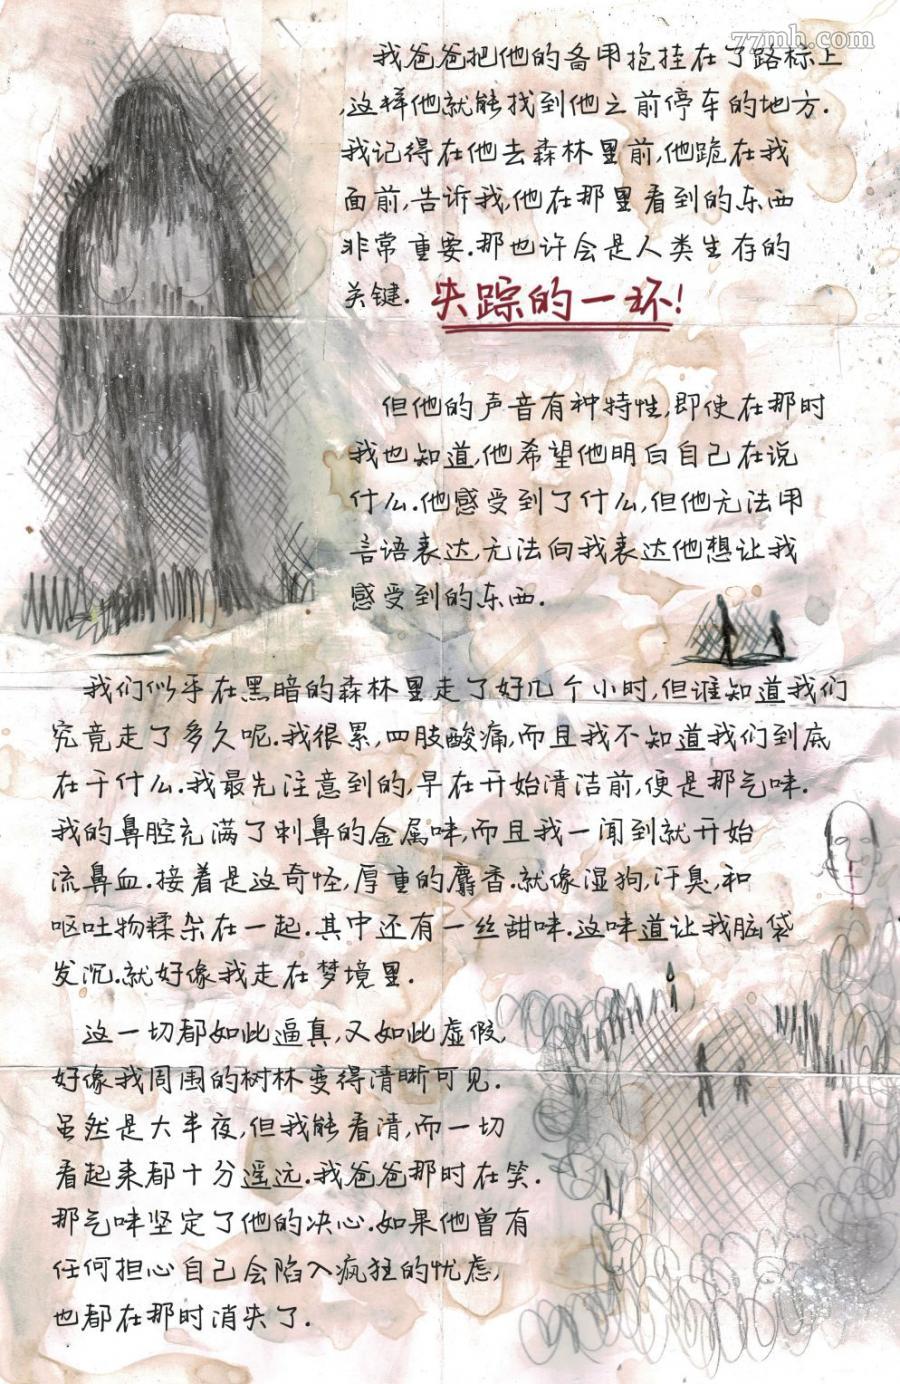 77mh.com
我爸爸把他的备甲抢挂在了路标上
,这样他就能找到他之前停车的地方.
我记得在他去森林里前,他跪在我
面前,告诉我,他在那里看到的东西
非常重要.那也许会是人类生存的
关键. 失踪的一环!
但他的声音有种特性,即使在那时
我也知道,他希望他明白自己在说
什么.他感受到了什么,但他无法用
言语表达,无法向我表达他想让我
感受到的东西.
我们似乎在黑暗的森林里走了好几个小时,但谁知道我们
究竟走了多久呢.我很累,四肢酸痛,而且我不知道我们到底
在干什么.我最先注意到的,早在开始清洁前,便是那气味.
我的鼻腔充满了刺鼻的金属味,而且我一闻到就开始
流鼻血.接着是这奇怪,厚重的麝香.就像湿狗,汗臭,和
呕吐物糅杂在一起.其中还有一丝甜味.这味道让我脑袋
发沉.就好像我走在梦境里.
这一切都如此逼真,又如此虚假,
好像我周围的树林变得清晰可见.
虽然是大半夜,但我能看清,而一切
看起来都十分遥远.我爸爸那时在笑.
那气味坚定了他的决心.如果他曾有
任何担心自己会陷入疯狂的忧虑,
也都在那时消失了.